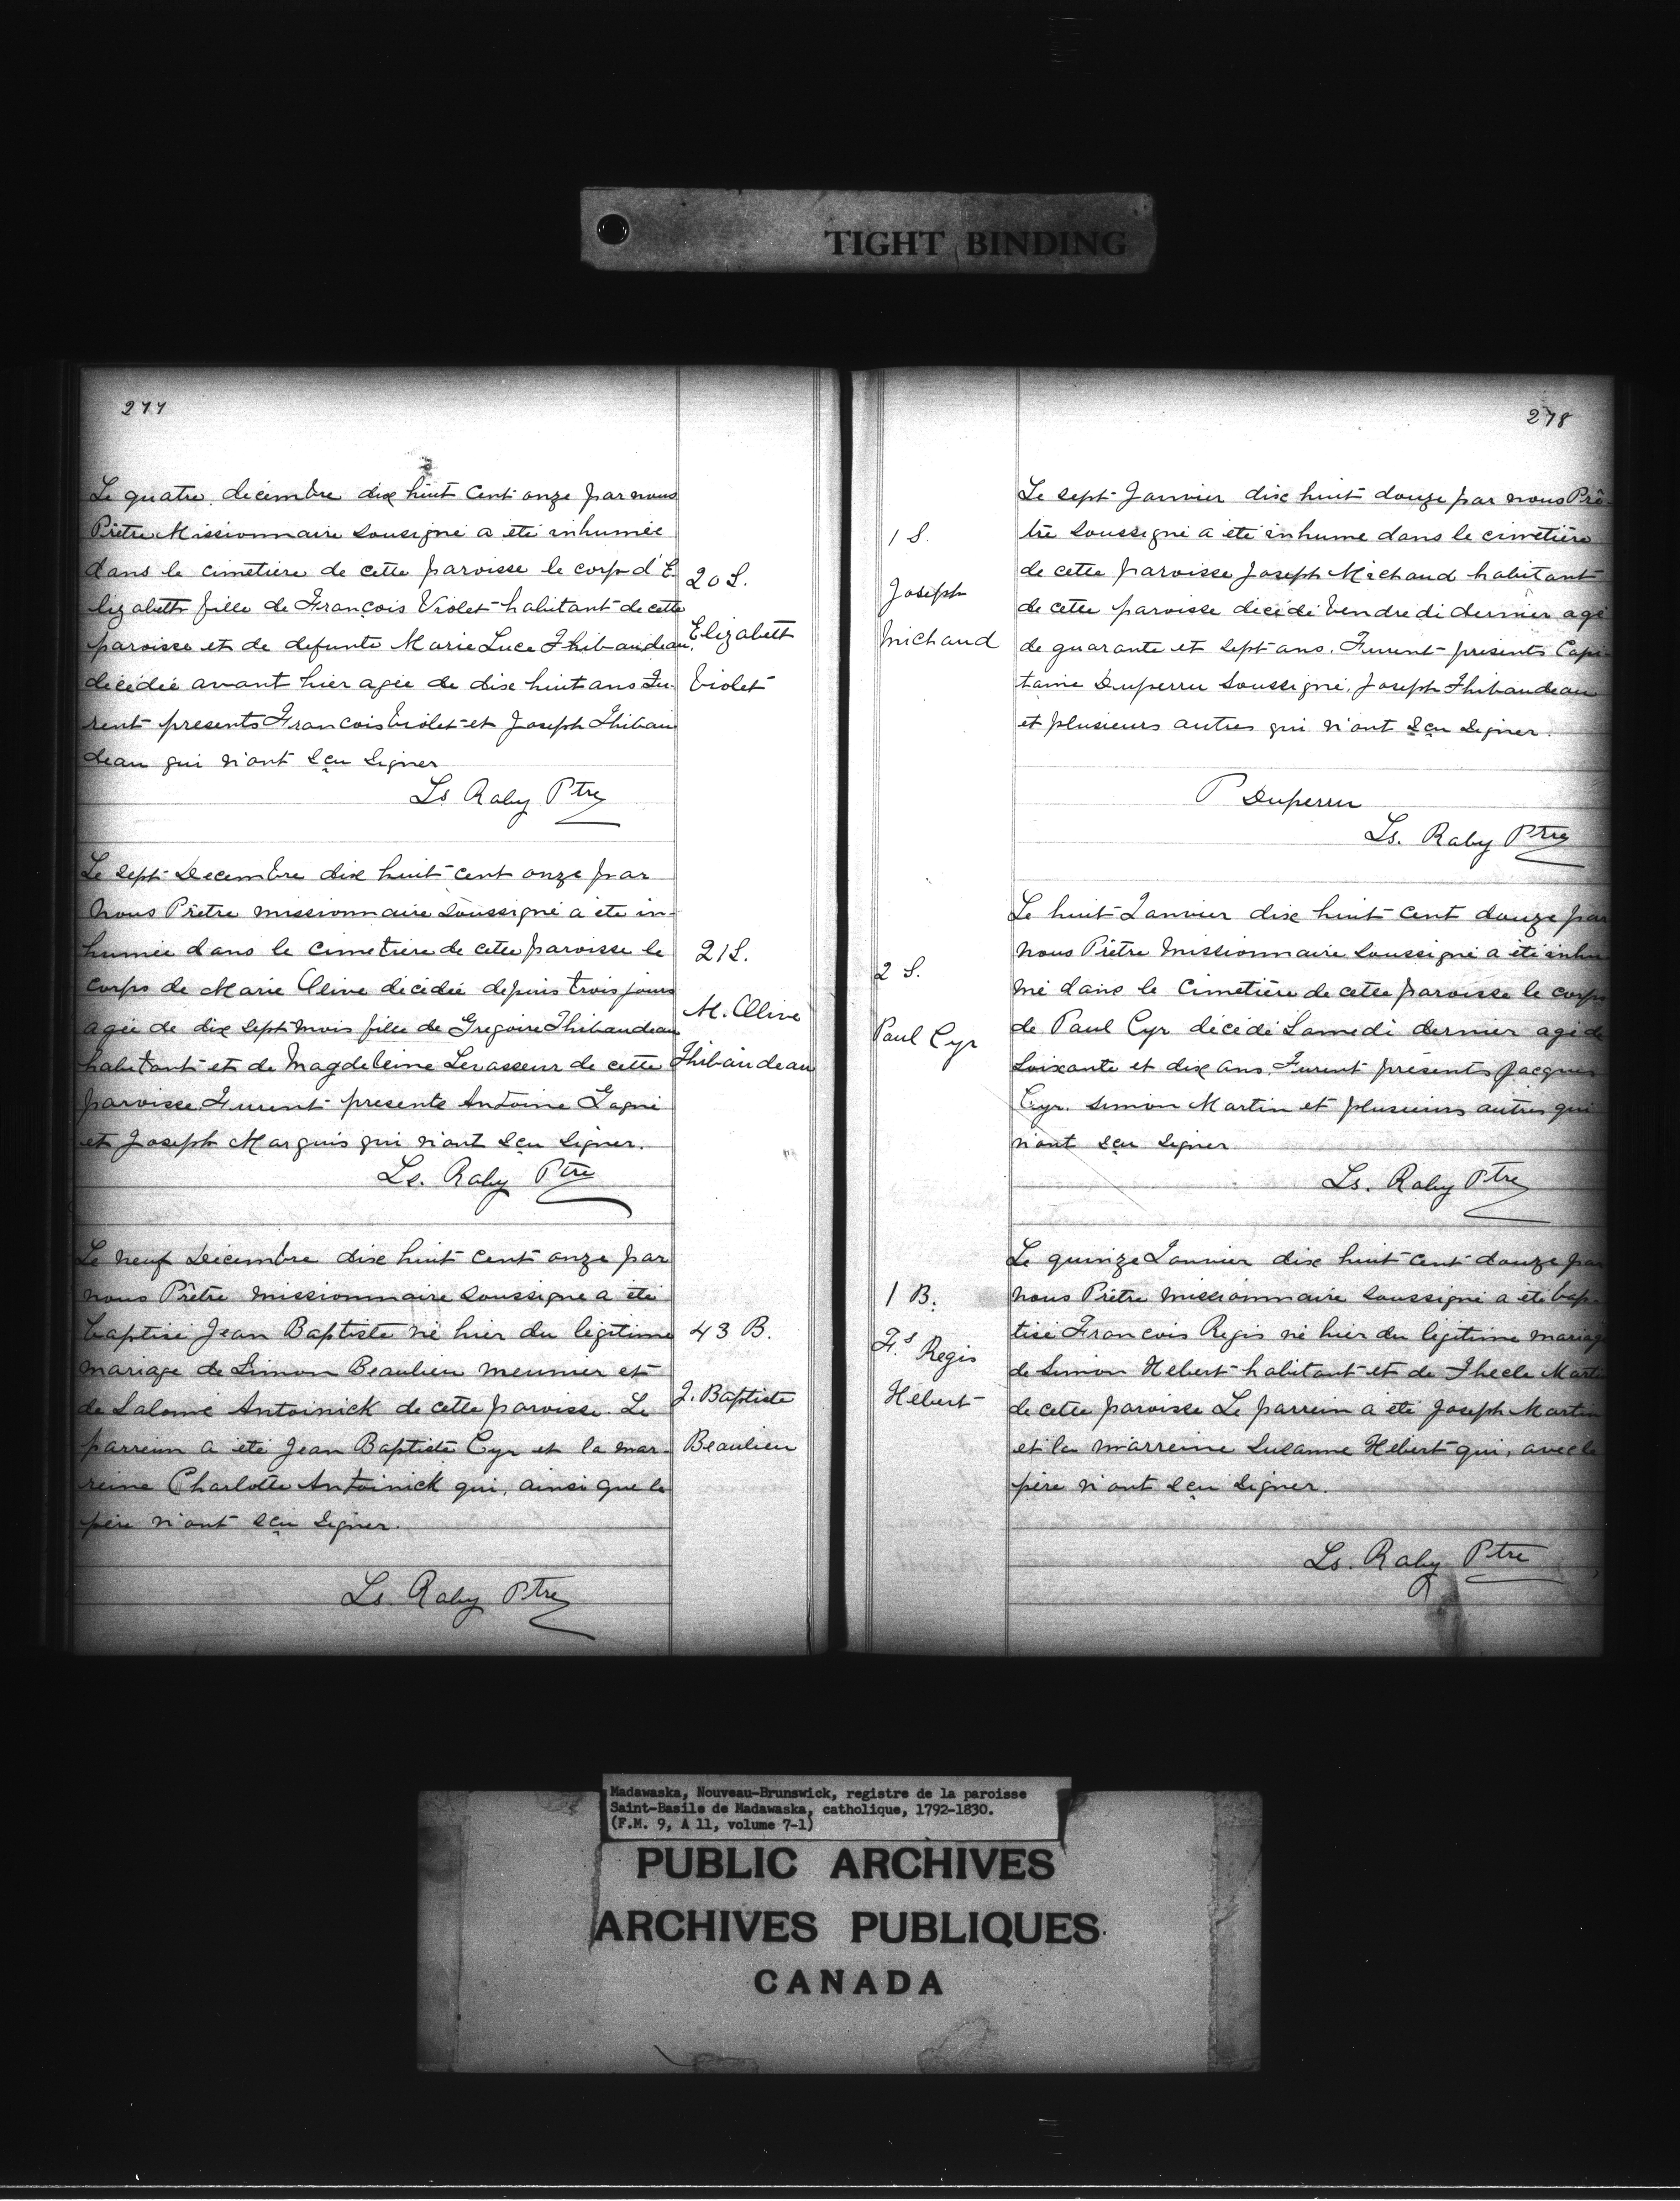 TIGHT BINDING
277
Le quatre decembre dix huit cent onze par nous
Prêtre Missionnaire Sousigné a été inhumée
dans le cimetiere de cette paroisse le corp d'E
lizabeth fille de François Violet habitant de cette
paroisse et de defunte Marie Luce Thibaudeau,
décédée avant hier agée de dix huit ans Fu-
rent presents Francois Violet et Joseph Thibau
deau qui n'ont sçu signer
Ls Raby Ptre
20 S.
Elizabeth
Violet
Le sept Decembre dix huit cent onze par
Nous Prêtre missionnaire Soussigné a été in-
humée dans le cimetiere de cette paroisse le
corps de Marie Olive décédée depuis trois jours
agée de dix sept mois fille de Gregoire Thibaudeau
habitant et de Magdeleine Levasseur de cette
paroisse Furent presents Antoine Gagné
et Joseph Marquis qui n'ont sçu signer.
Ls. Raby Ptre
21 S.
M. Olive
Thibaudeau
Le neuf Décembre dix huit cent onze par
nous Prêtre missionnaire Soussigné a été
baptisé Jean Baptiste né hier du légitime
mariage de Simon Beaulieu meunier et
de Salomé Antoinick de cette paroisse. Le
parrein a été Jean Baptiste Cyr et la mar-
reine Charlotte Antoinick qui, ainsi que le
père n'ont sçu signer.
Ls. Raby Ptre
43 B.
J. Baptiste
Beaulieu
278
Le sept Janvier dix huit douze par nous Prê-
tre soussigné a été inhumé dans le cimetière
de cette paroisse Joseph Michaud habitant
de cette paroisse décédé Vendredi dernier agé
de quarante et sept ans. Furent présents Capi-
taine Duperru Soussigné, Joseph Thibaudeau
et plusieurs autres qui n'ont sçu signer.
P Duperru
Ls. Raby Ptre
1 S.
Joseph
Michaud
Le huit Janvier dix huit cent douze par
nous Prêtre Missionnaire Soussigné a été inhu
mé dans le Cimetière de cette paroisse le corps
de Paul Cyr décédé Samedi dernier agé de
Soixante et dix ans, Furent présents Jacques
Cyr. Simon Martin et plusieurs autres qui
n'ont sçu signer
Ls. Raby Ptre
2 S.
Paul Cyr
Le quinze Janvier dix huit cent douze par
nous Prêtre missionnaire Soussigné a été bap-
tisé Francois Regis né hier du légitime mariage
de Simon Hebert habitant et de Thecle Marti
de cette paroisse Le parrein a été Joseph Martin
et la marreine Susanne Hebert qui, avec le
père n'ont sçu signer.
Ls. Raby Ptre
1 B.
Fs Regis
Hebert
Madawaska, Nouveau-Brunswick, registre de la paroisse
Saint-Basile de Madawaska, catholique, 1792-1830.
(F.M. 9, A 11, volume 7-1)
PUBLIC ARCHIVES
ARCHIVES PUBLIQUES
CANADA